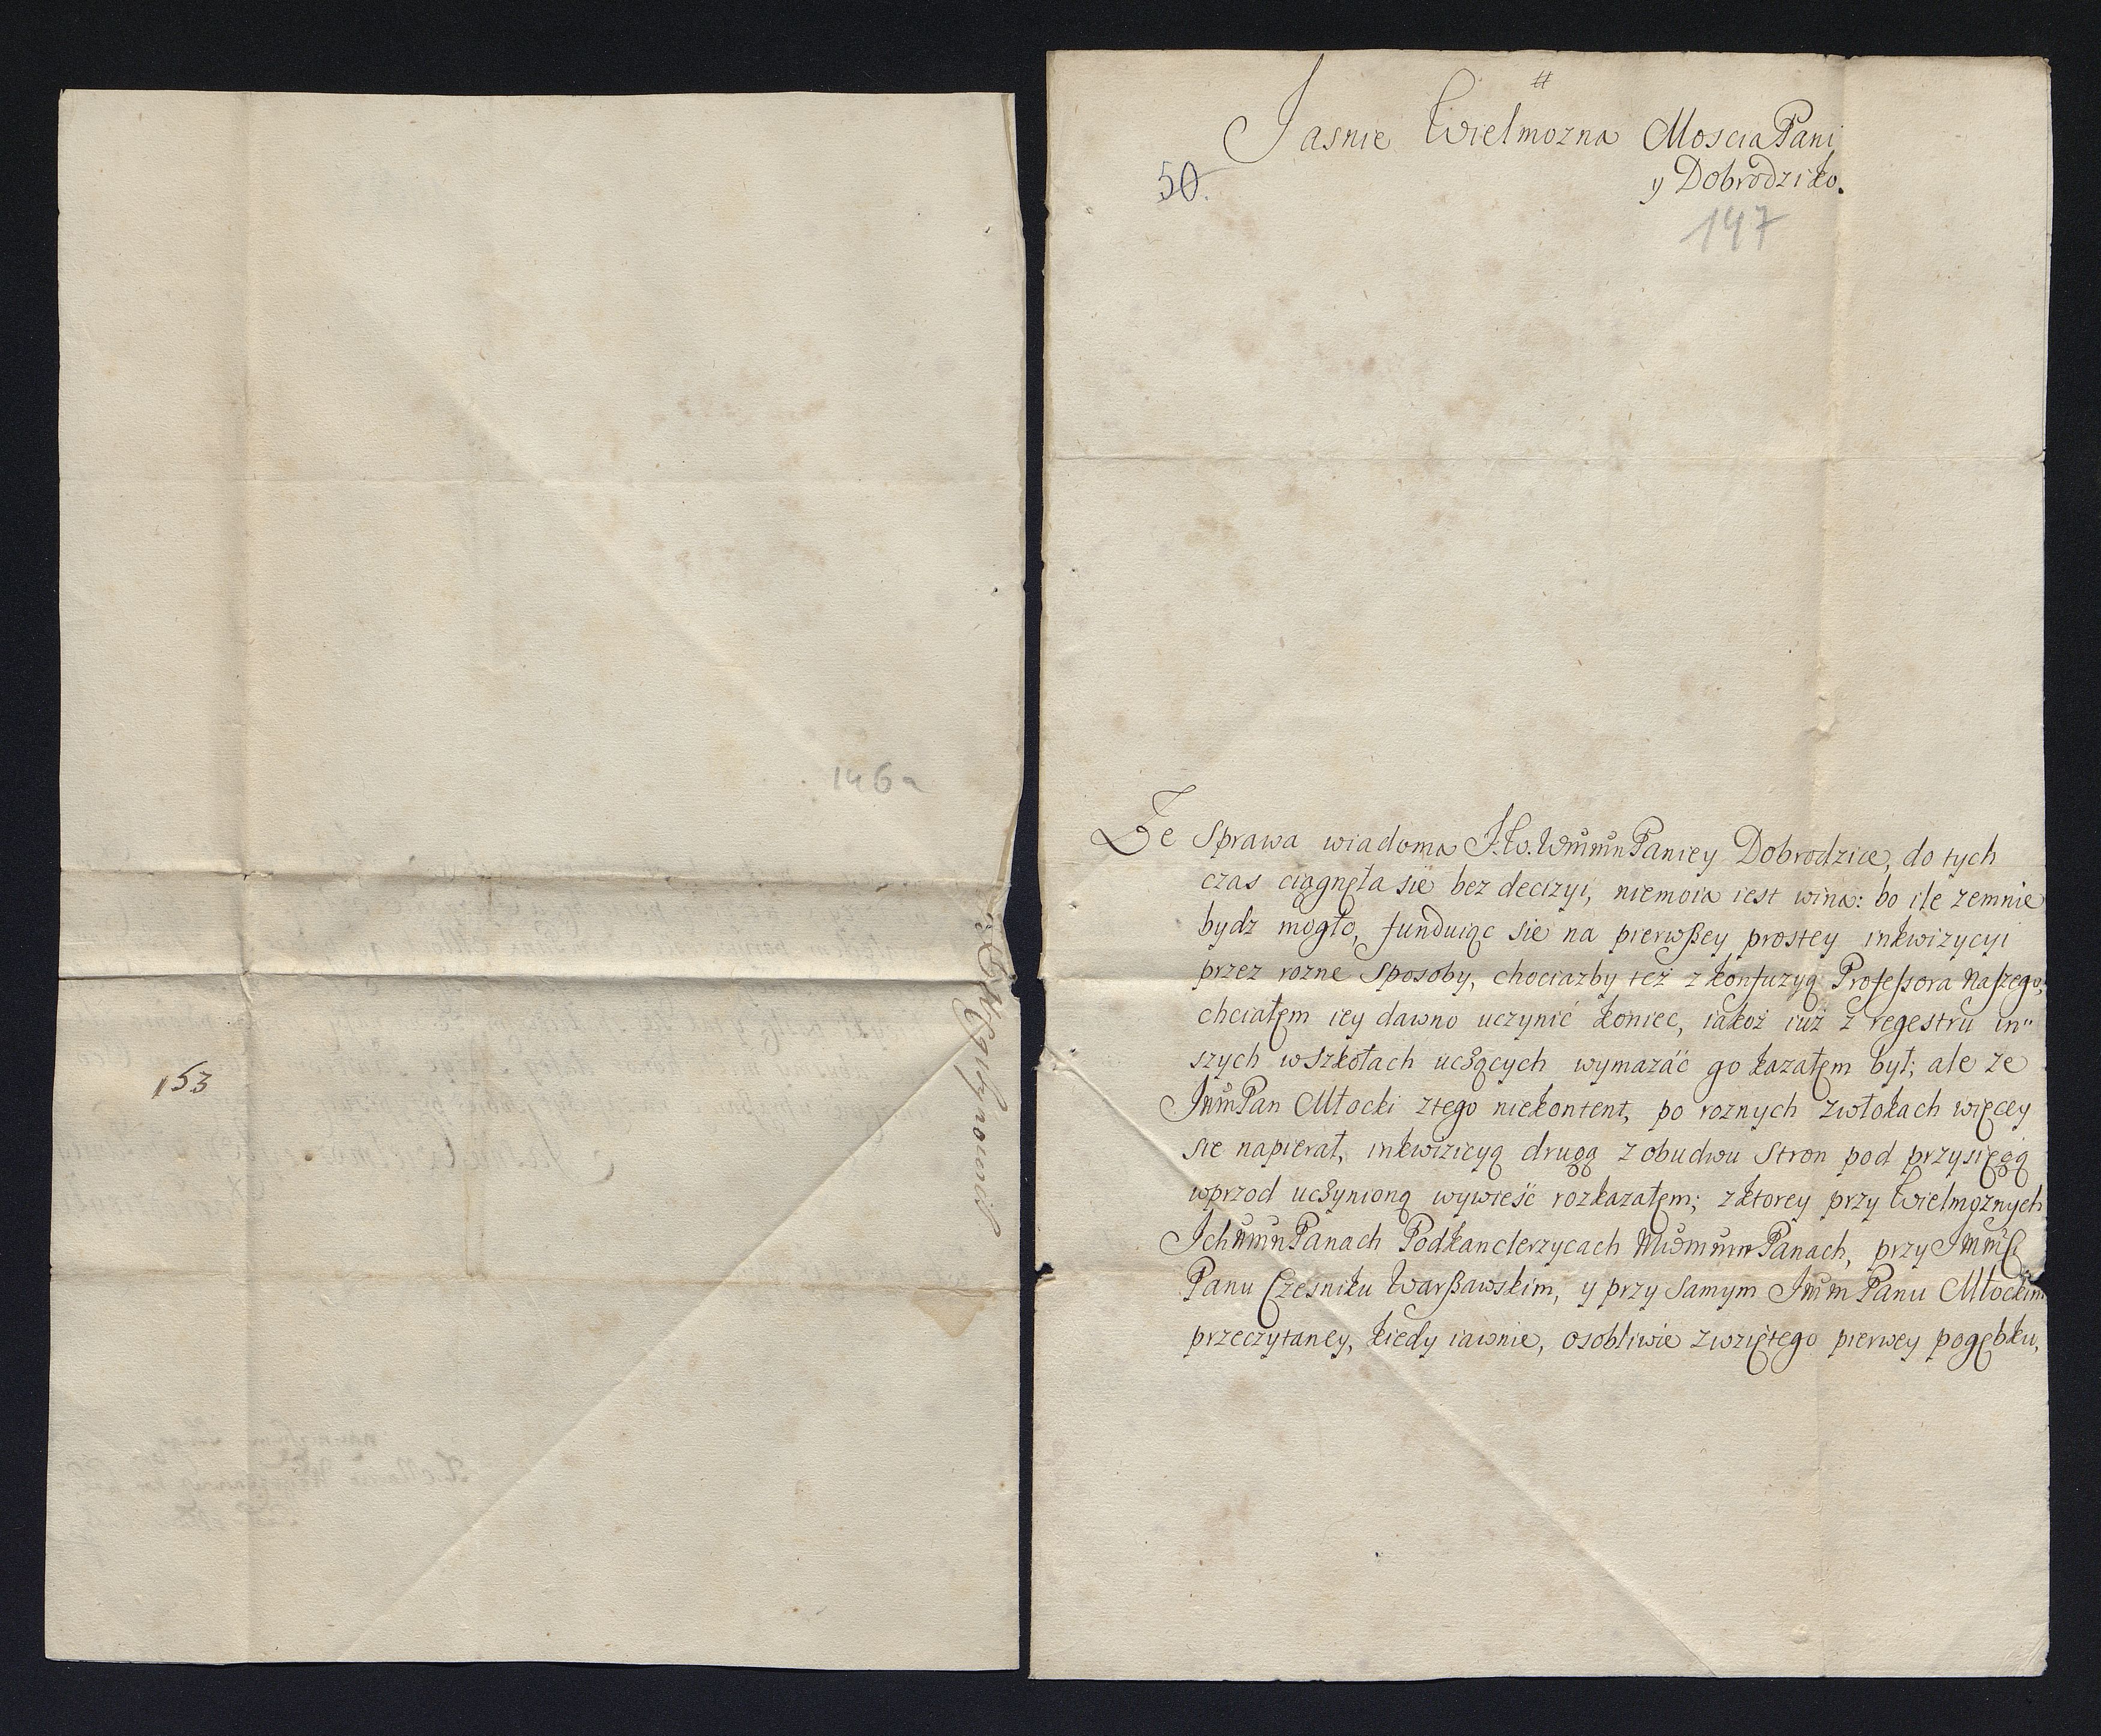 146a
153
#
Jasnie Wielmozna Moscia Pani
y Dobrodziko.
50.
147
Ze Sprawa wiadoma J.W. WmmnPaniey Dobrodzice, do tych
czas ciągnęła się bez decizyi, niemoia iest wina: bo ile zemnie
bydz mogło, funduiąc się na pierwßey prostey inkwizycyi
przez rozne sposoby, chociazby też z konfuzyą Professora Naszego,
chciałem iey dawno uczynić koniec, iakoż iuż z regestru in"
szych wszkołach uczących wymazáć go kazałem był; ale ze
JmmPan Młocki ztego niekontent, po roznych zwłokach więcey
się napierał, inkwizicyą drugą z obudwu stron pod przysięgą
wprzod uczynioną wywieść rozkazałem; zktorey przy Wielmożnych
IchmmnPanach Podkanclerzycach WmmnPanach, przy Jmmć
Panu Czesniku Warßawskim, y przy samym Jmm Panu Młockim
przeczytaney, kiedy iawnie, osobliwie zwziętego pierwey pogębku,